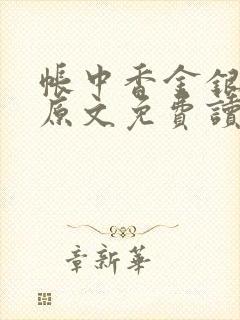 帳中香金銀
原文免費讀
章新華